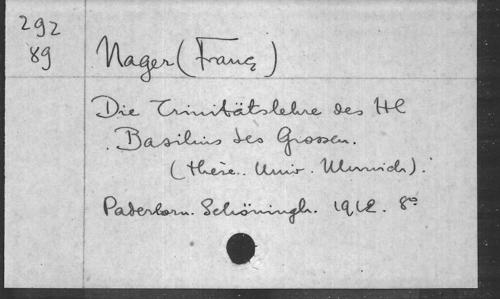 292
89
Nager (Franz)
Die Trinitätslehre des Hl
Basilius des Grossen.
(thèse. Univ. Munich).
Paderborn. Schöningh. 1912. 8º